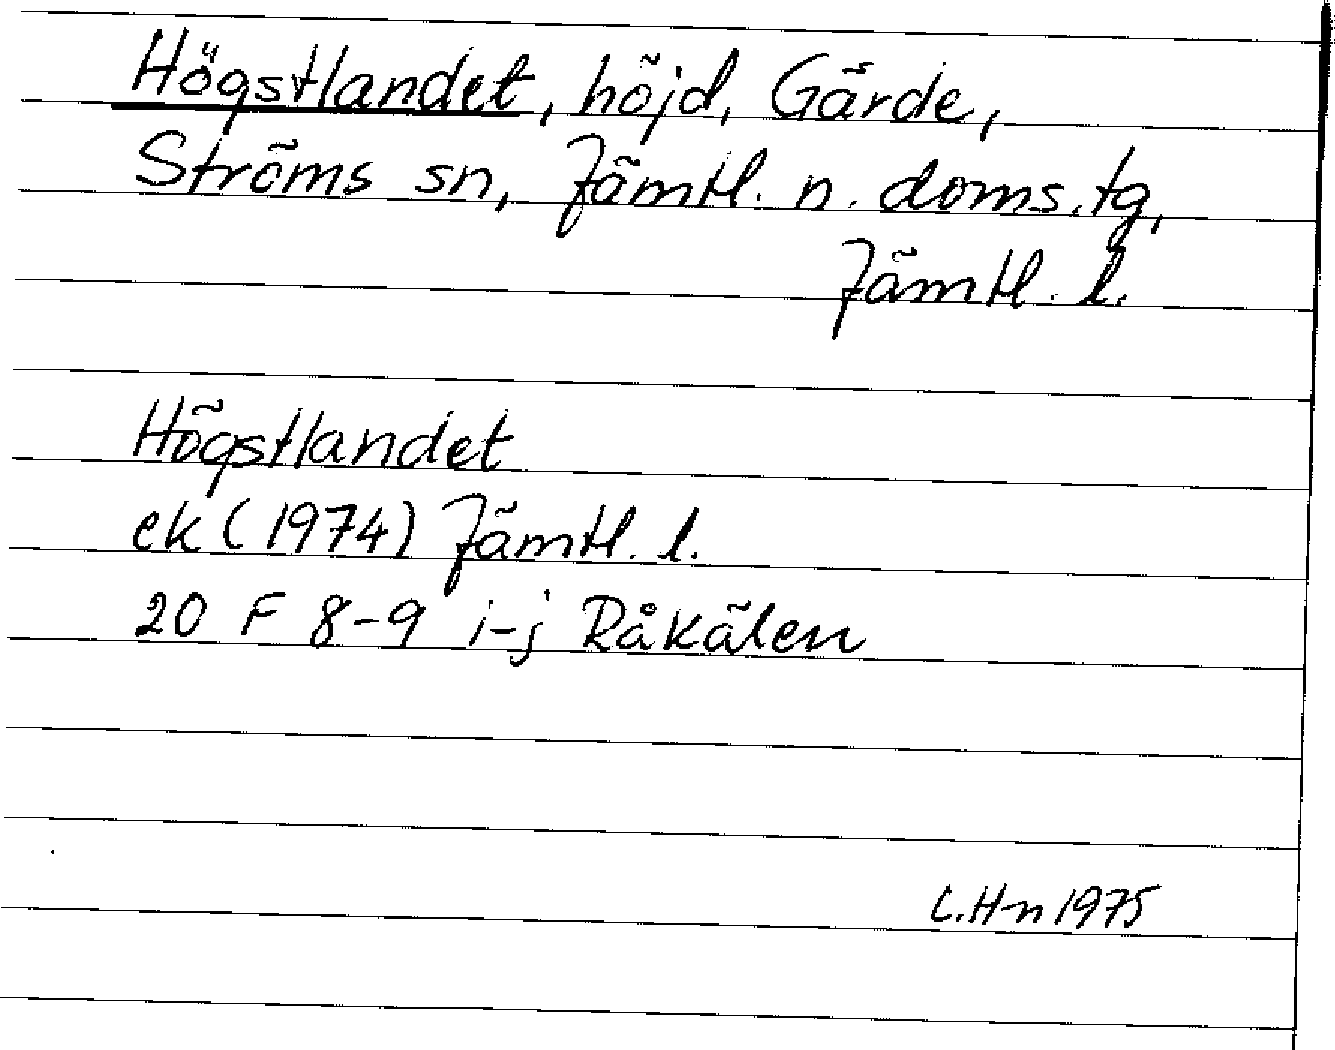 Högstlandet, höjd, Gärde,
Ströms sn, Jämtl. n. doms.tg,
Jämtl. l.
Högstlandet
ek (1974) Jämtl. l.
20 F 8-9 i-j Råkälen
L.Hn 1975